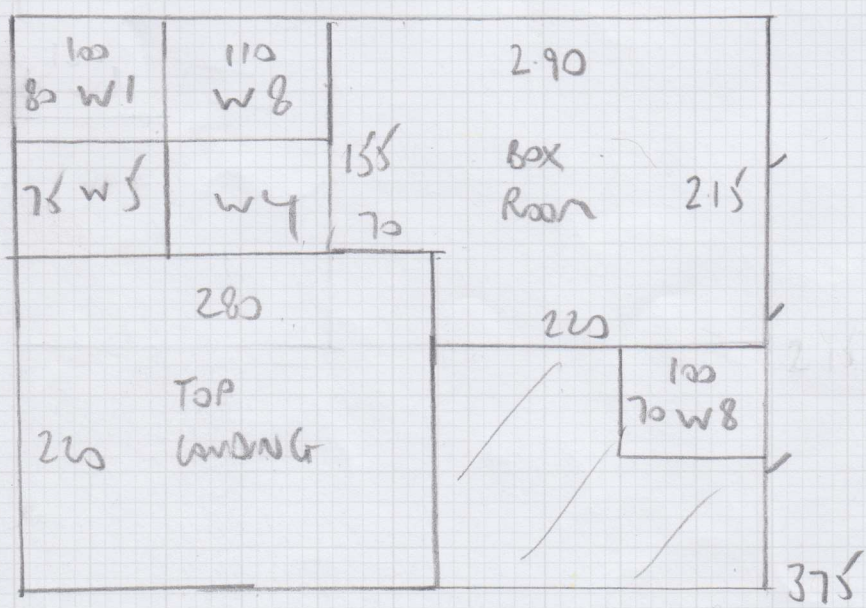 100
80 W1
110
W8
2.90
75 W5
W4
155
70
BOX
ROOM
2.15
280
220
TOP
LANDING
220
100
70 W8
2.15
375